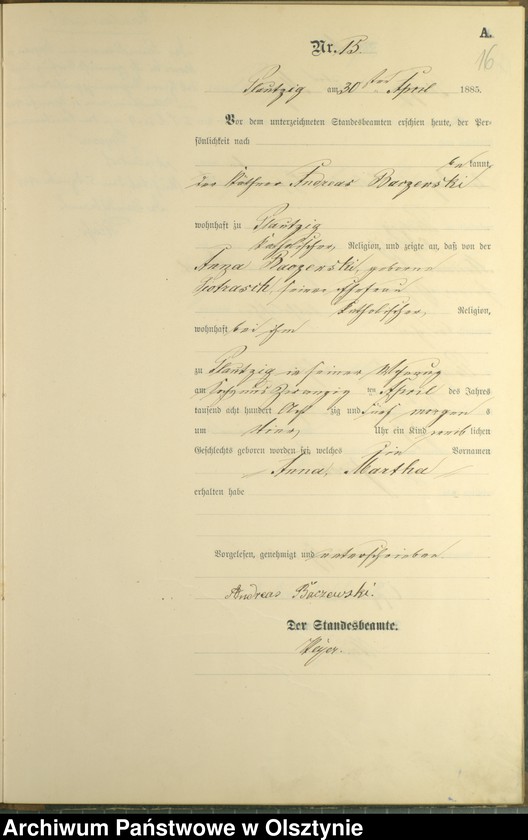 A.
16
Nr. 15.
Plautzig am 30ten April 1885.
Vor dem unterzeichneten Standesbeamten erschien heute, der Per-
sönlichkeit nach
be kannt,
der Käthner Andreas Baczewski
wohnhaft zu Plautzig
katholischer Religion, und zeigte an, daß von der
Anna Baczewski, geborene
seiner Ehefrau
katholischer Religion,
wohnhaft bei ihm
zu Plautzig in seiner Wohnung
am ten April des Jahres
tausend acht hundert acht zig und fünf morgen s
um vier Uhr ein Kind weib lichen
Geschlechts geboren worden sei, welches die Vornamen
Anna, Martha
erhalten habe
Vorgelesen, genehmigt und unterschrieben.
Andreas Baczewski.
Der Standesbeamte.
Archiwum Państwowe w Olsztynie